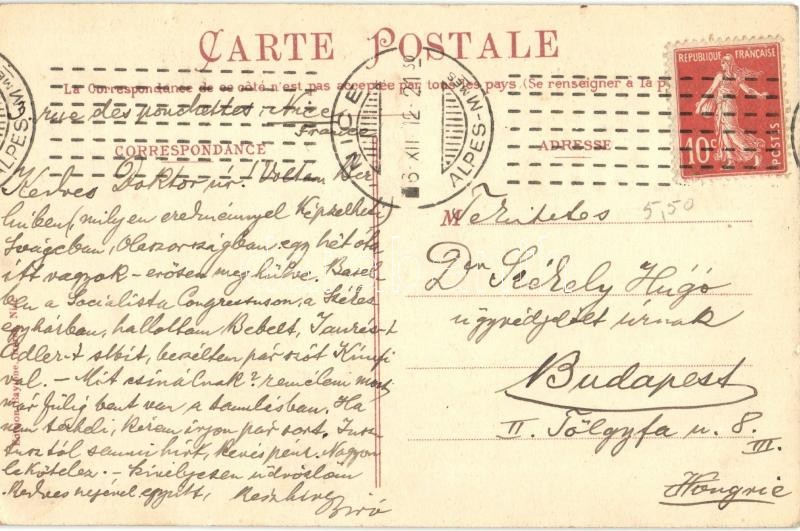 CARTE POSTALE
La Correspondance de ce côté n'est pas acceptée par tous les pays (Se renseigner à la p
rue des ponchettes Nice
France
CORRESPONDANCE
ADRESSE
NICE
ALPES-MMES
REPUBLIQUE FRANÇAISE
10c
POSTES
5,50
Kedves Doktor úr! Voltam Ber
linben (milyen eredménnyel képzelheti)
Svájcban, Olaszországban, egy hét óta
itt vagyok - erősen meghülve. Basel-
ben a Socialista Congressuson, a Székes
egyházban, hallottam Bebelt, Jaurès-t
Adler-t stbit, beszéltem pár szót Kunfi
val. - Mit csinálnak? remélem most
már fülig bent van a tanulásban. Ha
nem terheli, kérem írjon pár sort.
semmi hírt, kevés pénz. Nagyon
lekötelez. - Szívélyesen üdvözlöm
Kedves nejével együtt,
Biró
M Tekintetes
Dr Székely Hugó
ügyvédjelölt úrnak
Budapest
II. Tölgyfa u. 8.
III.
Hongrie